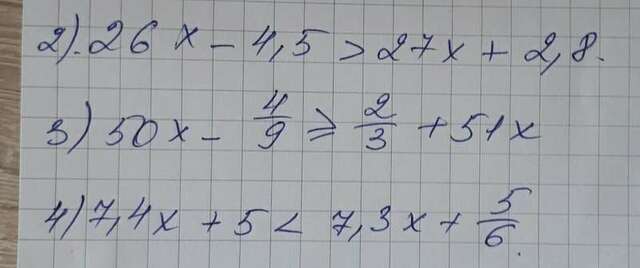 2). 26x - 4,5 > 27x + 2,8.
3) 50x - 4/9 ⩾ 2/3 + 51x
4) 7,4x + 5 < 7,3x + 5/6.